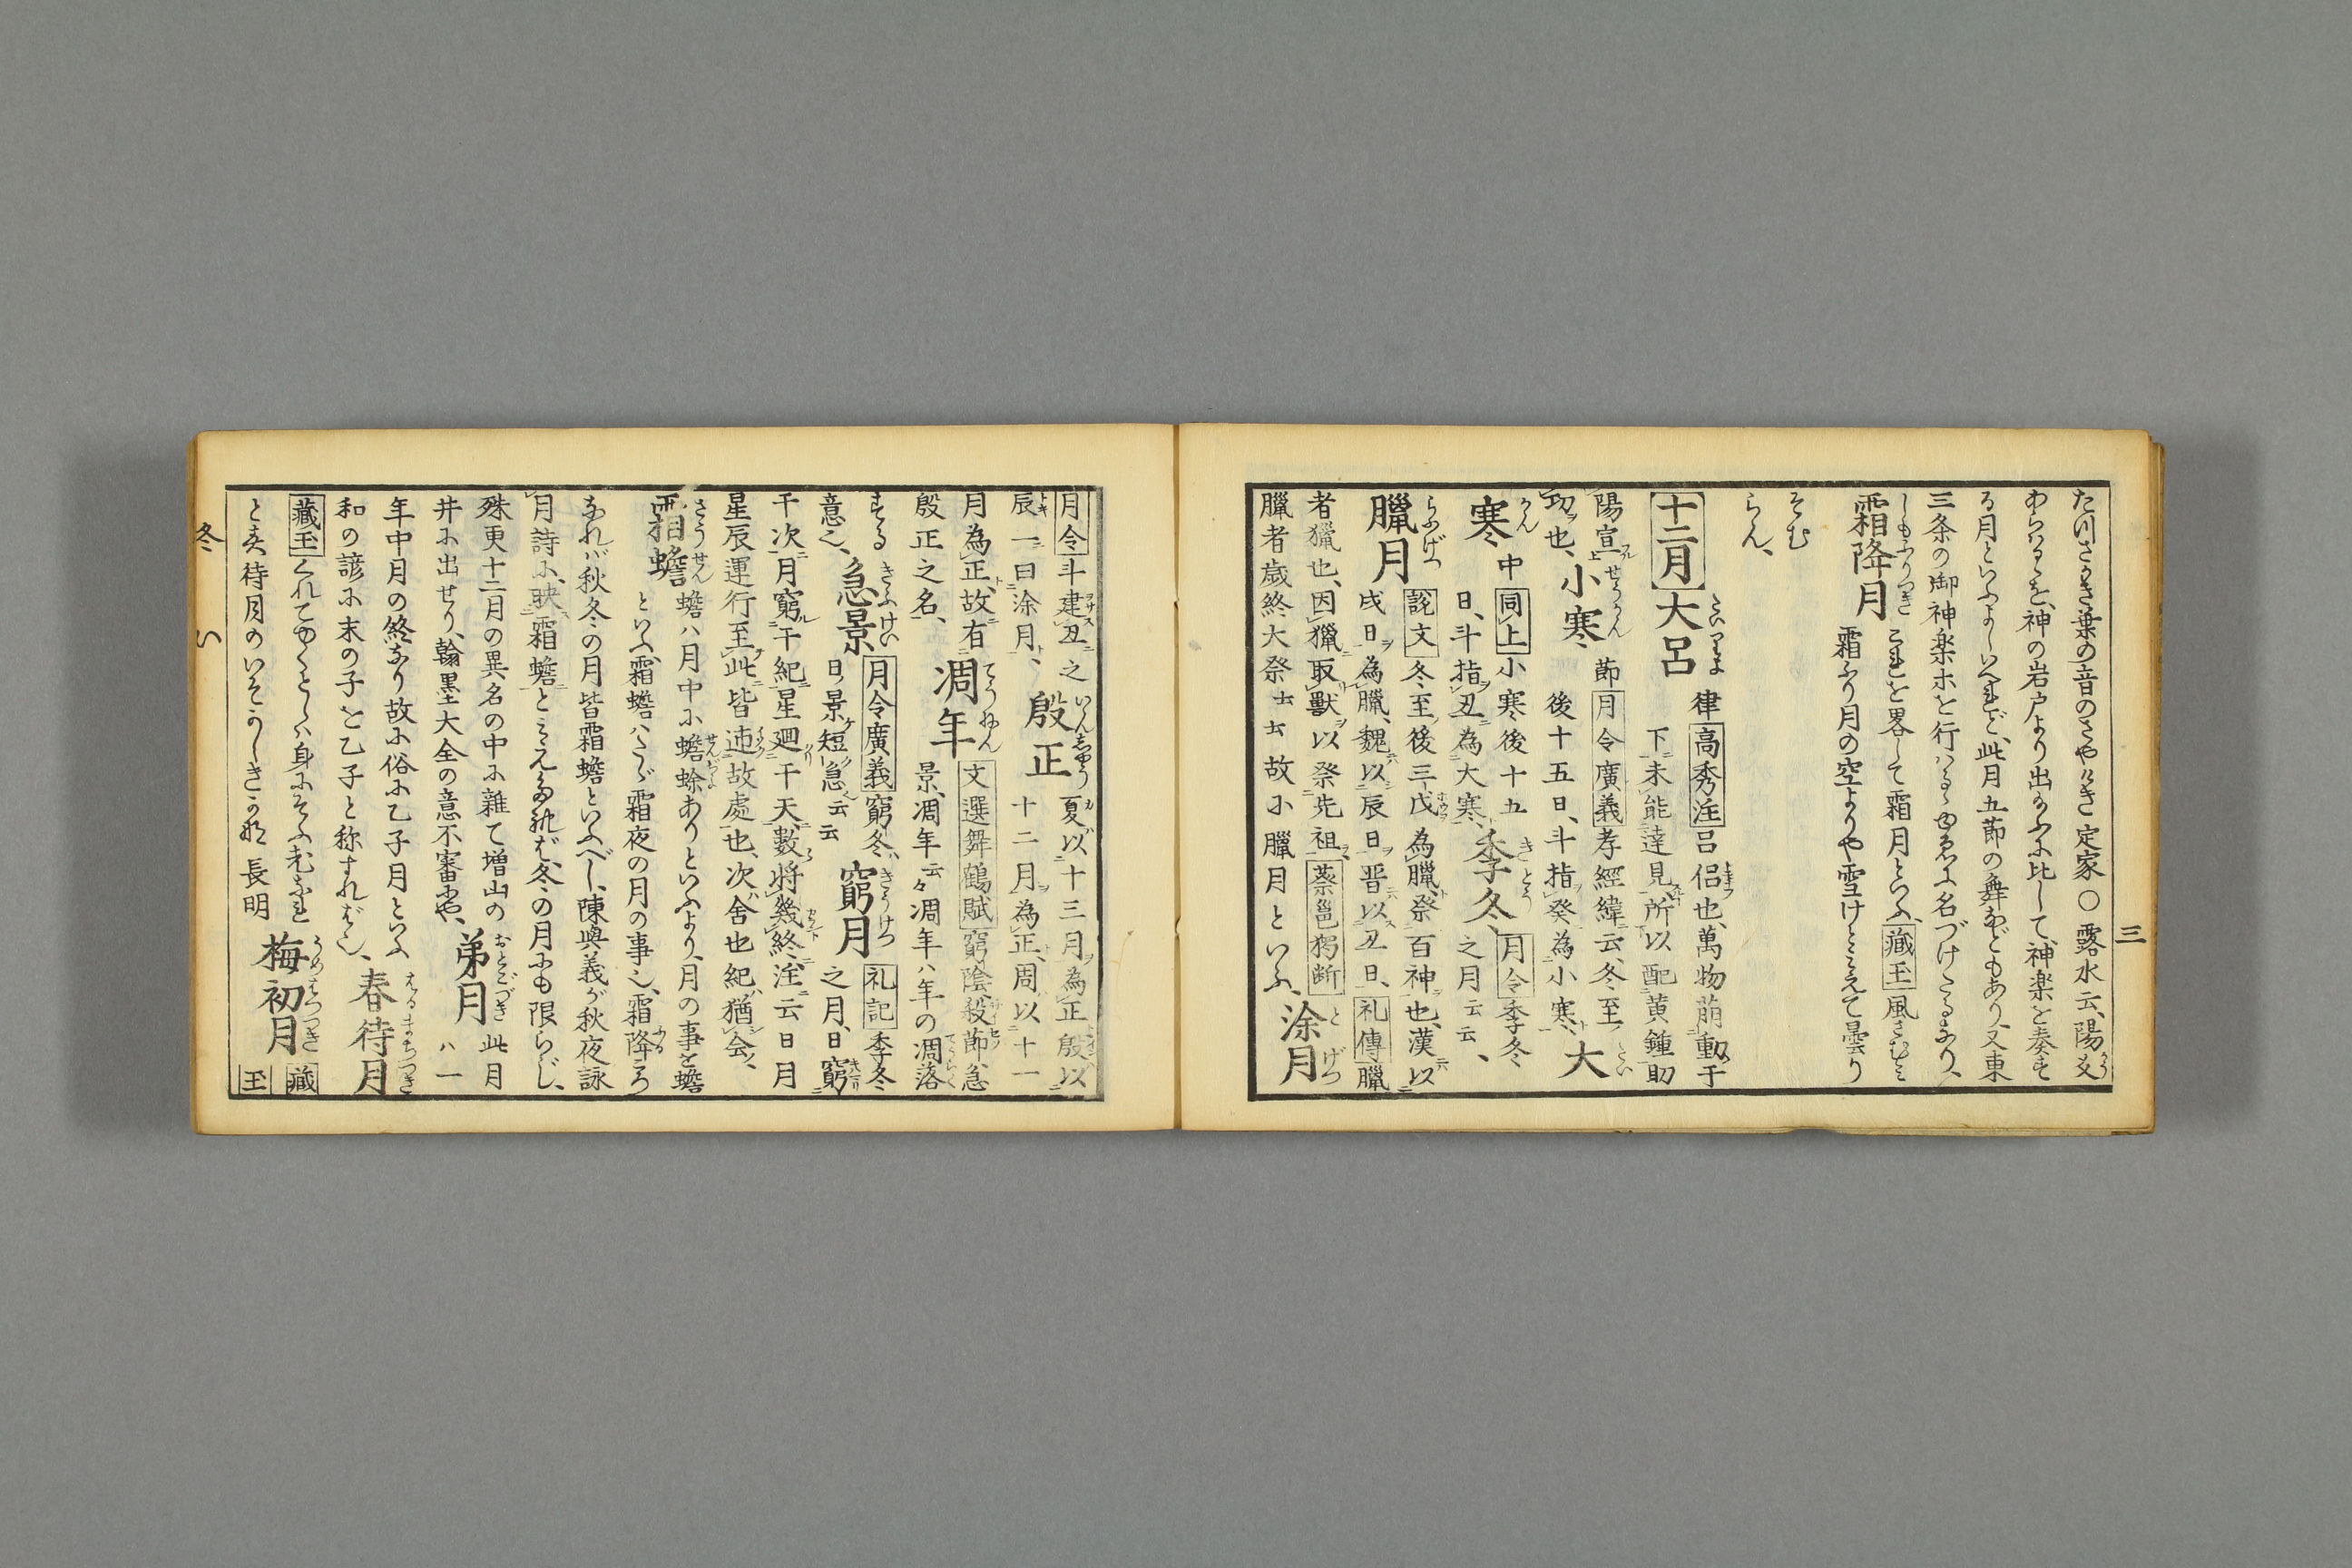 三
たつさかき葉の音のさやけき 定家 ○ 露水云、陽爻
あらハるゝを、神の岩戸より出給ふに比して、神楽を奏す
る月といふよしいへれど、此月五節の舞などもあり、又東
三条の御神楽ホを行ハるゝゆゑに名づけたるなり、
霜降月 しもふりつき これを畧して霜月といふ、藏玉 風さむみ
霜ふり月の空よりや雪けとみえて曇り
そむ
らん、
十二月 大呂 たいりよ 律 高秀注 呂侶也、萬物萠動于
下未能達見所以配黄鐘助
陽宣
功也、小寒 せうかん 節 月令廣義 孝經緯云、冬至
後十五日、斗指癸為小寒、大 たい
寒 かん 中 同上 小寒後十五
日、斗指丑為大寒、季冬 きとう 月令 季冬
之月云云、
臘月 らふげつ 説文 冬至後三戊為臘祭百神也、漢以
戌日為臘、魏以辰日晋以丑日、礼傳 臘
者獵也、因獵取獸以祭先祖、蔡邕獨断
臘者歳終大祭云云故に臘月といふ、涂月 とげつ
月令 斗建丑之
辰一曰涂月、殷正 いんしやう 夏以十三月為正殷以
十二月為正、周以十一
月為正、故有
殷正之名、凋年 てうねん 文選舞鶴賦 窮陰殺節、急
景、凋年云々凋年ハ年の凋落
する
意也、急景 きふけい 月令廣義 窮冬
日景短急云云 窮月 きうげつ 礼記 季冬
之月、日窮
于次月窮于紀星廻于天、數将幾終、注云日月
星辰運行至此皆迊故處也、次舎也紀猶会、
霜蟾 さうせん 蟾ハ月中に蟾蜍ありといふより、月の事を蟾
といふ、霜蟾ハたゞ霜夜の月の事也、霜降ころ
なれバ秋冬の月皆霜蟾といふべし、陳與義が秋夜詠
月詩に、映霜蟾とみえたれば、冬の月にも限らじ、
殊更十二月の異名の中に雜て増山の
井に出せり、翰墨大全の意不審や、弟月 おとごづき 此月
ハ一
年中月の終なり故に俗に乙子月といふ
和の諺に末の子を乙子と称すればなり、春待月 はるまちつき
藏玉 くれてゆくとしハ身にそふ老なれ
と春待月のいそかしきかな 長明 梅初月 うめはつつき 藏
玉
冬 い